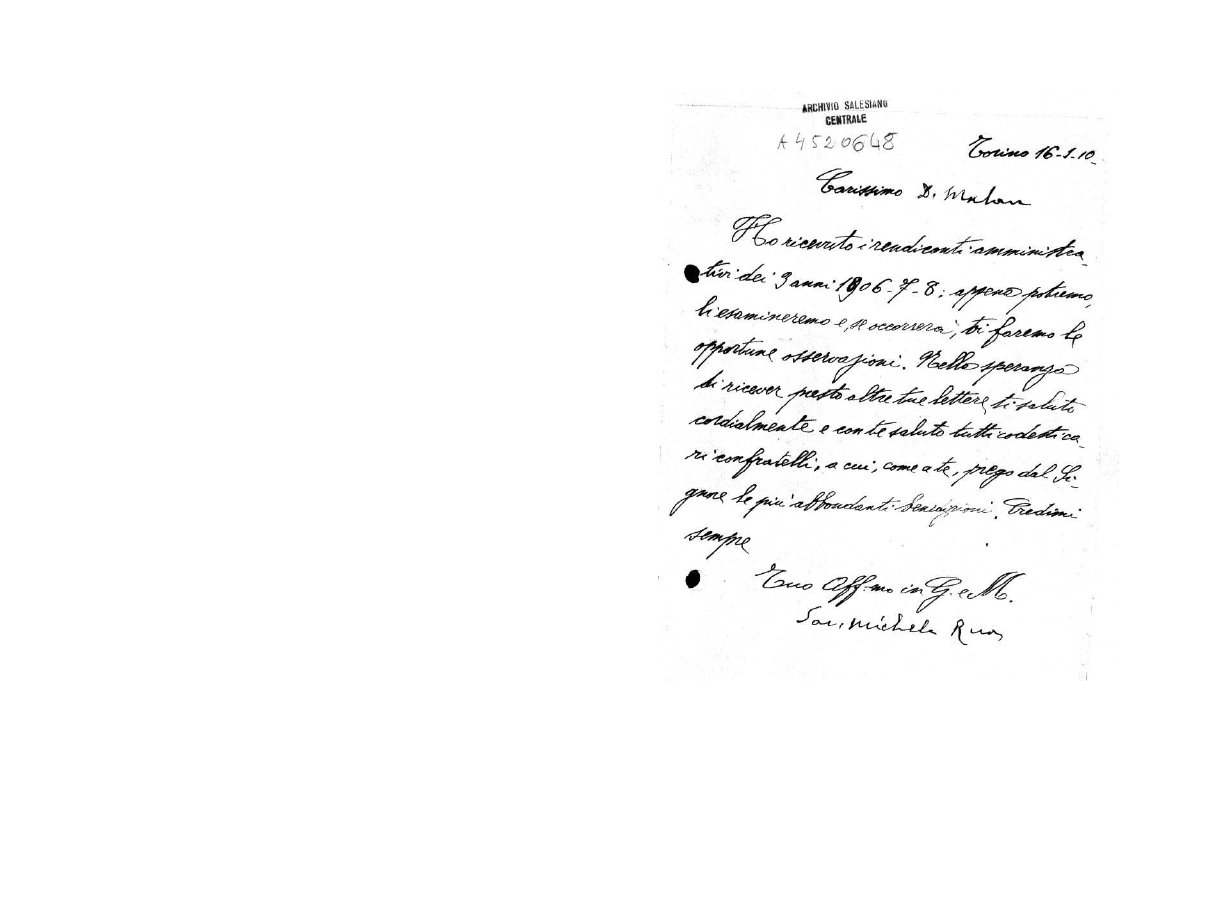 ARCHIVIO SALESIANO
CENTRALE
A4520648
Torino 16-1-10.
Carissimo D. Malan
Ho ricevuto i rendiconti amministra-
tivi dei 3 anni 1906-7-8: appena potremo,
li esamineremo e, se occorrerà, ti faremo le
opportune osservazioni. Nella speranza
di ricever presto altre tue lettere ti saluto
cordialmente e con te saluto tutti codesti ca-
ri confratelli, a cui, come a te, prego dal Si-
gnore le più abbondanti benedizioni. Credimi
sempre
Tuo Aff.mo in G. e M.
Sac. Michele Rua